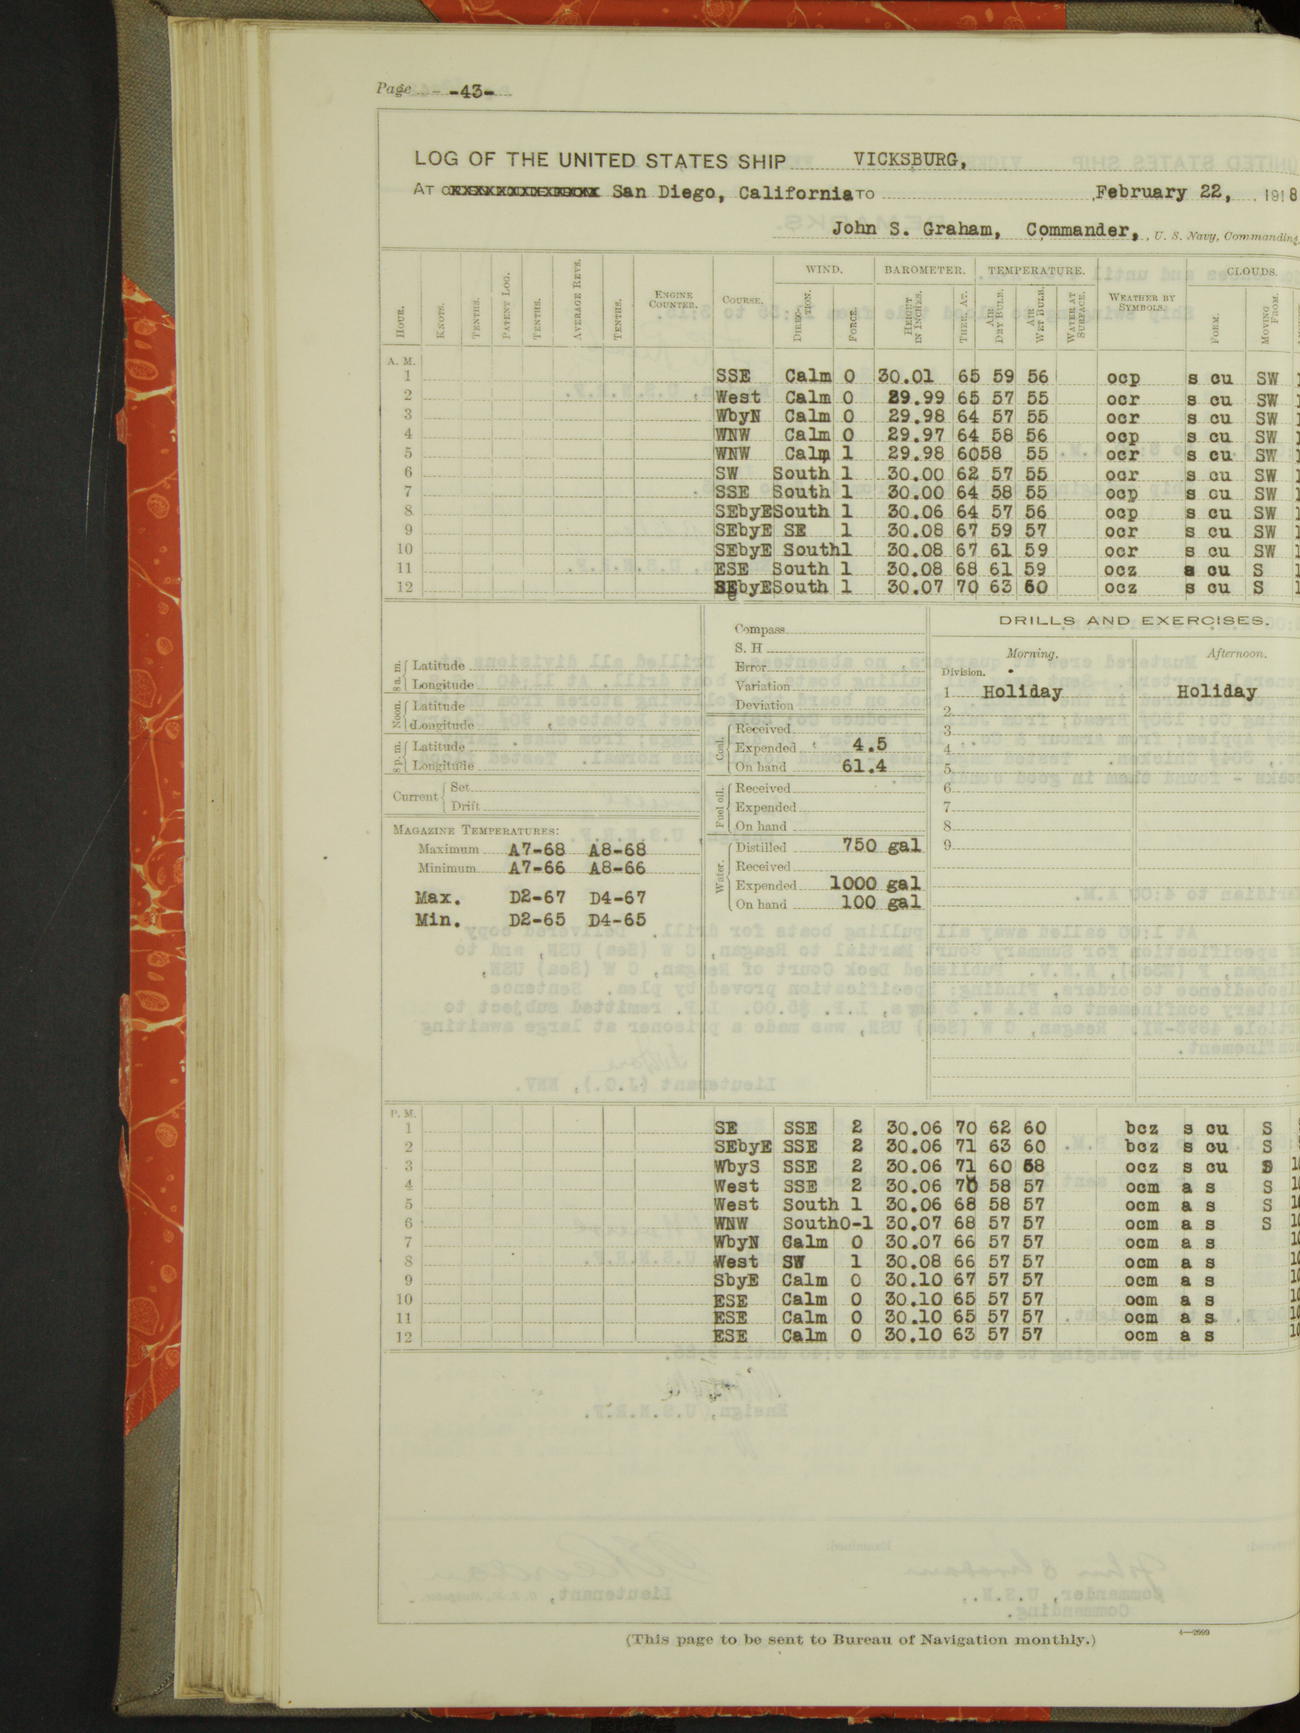 Page -43-
LOG OF THE UNITED STATES SHIP VICKSBURG,
AT San Diego, California TO February 22, 1918
John S. Graham, Commander, U. S. Navy, Commanding
WIND. BAROMETER. TEMPERATURE. CLOUDS.
HOUR. KNOTS. TENTHS. PATENT LOG. TENTHS. AVERAGE REVS. TENTHS. ENGINE COUNTER. COURSE. DIRECTION. FORCE. HEIGHT IN INCHES. THER. AT. AIR DRY BULB. AIR WET BULB. WATER AT SURFACE. WEATHER BY SYMBOLS. FORM. MOVING FROM.
A. M.
1 SSE Calm 0 30.01 65 59 56 ocp s cu SW
2 West Calm 0 29.99 65 57 55 ocr s cu SW
3 WbyN Calm 0 29.98 64 57 55 ocr s cu SW
4 WNW Calm 0 29.97 64 58 56 ocp s cu SW
5 WNW Calm 1 29.98 6058 55 ocr s cu SW
6 SW South 1 30.00 62 57 55 ocr s cu SW
7 SSE South 1 30.00 64 58 55 ocp s cu SW
8 SEbyE South 1 30.06 64 57 56 ocp s cu SW
9 SEbyE SE 1 30.08 67 59 57 ocr s cu SW
10 SEbyE South1 30.08 67 61 59 ocr s cu SW
11 ESE South 1 30.08 68 61 59 ocz s cu S
12 SEbyE South 1 30.07 70 63 60 ocz s cu S
8 a. m. Latitude
Longitude
Noon. Latitude
Longitude
8 p. m. Latitude
Longitude
Current Set
Drift
MAGAZINE TEMPERATURES:
Maximum A7-68 A8-68
Minimum A7-66 A8-66
Max. D2-67 D4-67
Min. D2-65 D4-65
Compass
S. H
Error
Variation
Deviation
Coal. Received
Expended 4.5
On hand 61.4
Fuel oil. Received
Expended
On hand
Water. Distilled 750 gal
Received
Expended 1000 gal
On hand 100 gal
DRILLS AND EXERCISES.
Morning. Afternoon.
Division.
1 Holiday Holiday
2
3
4
5
6
7
8
9
P. M.
1 SE SSE 2 30.06 70 62 60 bcz s cu S
2 SEbyE SSE 2 30.06 71 63 60 bcz s cu S
3 WbyS SSE 2 30.06 71 60 58 ocz s cu S 10
4 West SSE 2 30.06 70 58 57 ocm a s S 10
5 West South 1 30.06 68 58 57 ocm a s S 10
6 WNW South0-1 30.07 68 57 57 ocm a s S 10
7 WbyN Calm 0 30.07 66 57 57 ocm a s 10
8 West SW 1 30.08 66 57 57 ocm a s 10
9 SbyE Calm 0 30.10 67 57 57 ocm a s 10
10 ESE Calm 0 30.10 65 57 57 ocm a s 10
11 ESE Calm 0 30.10 65 57 57 ocm a s 10
12 ESE Calm 0 30.10 63 57 57 ocm a s 10
(This page to be sent to Bureau of Navigation monthly.)
4—2999